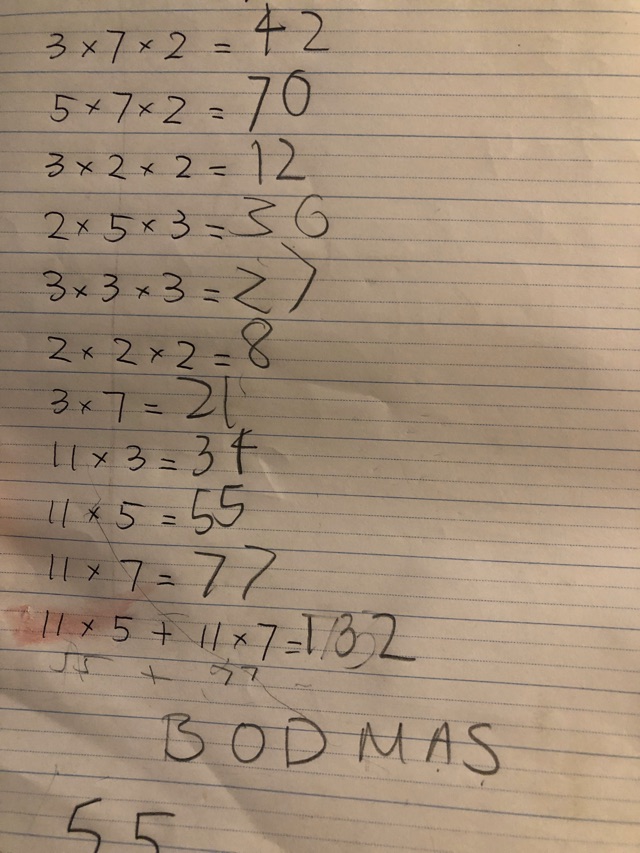 3 × 7 × 2 = 42
5 × 7 × 2 = 70
3 × 2 × 2 = 12
2 × 5 × 3 = 36
3 × 3 × 3 = 27
2 × 2 × 2 = 8
3 × 7 = 21
11 × 3 = 34
11 × 5 = 55
11 × 7 = 77
11 × 5 + 11 × 7 = 132
55 + 77
BODMAS
55